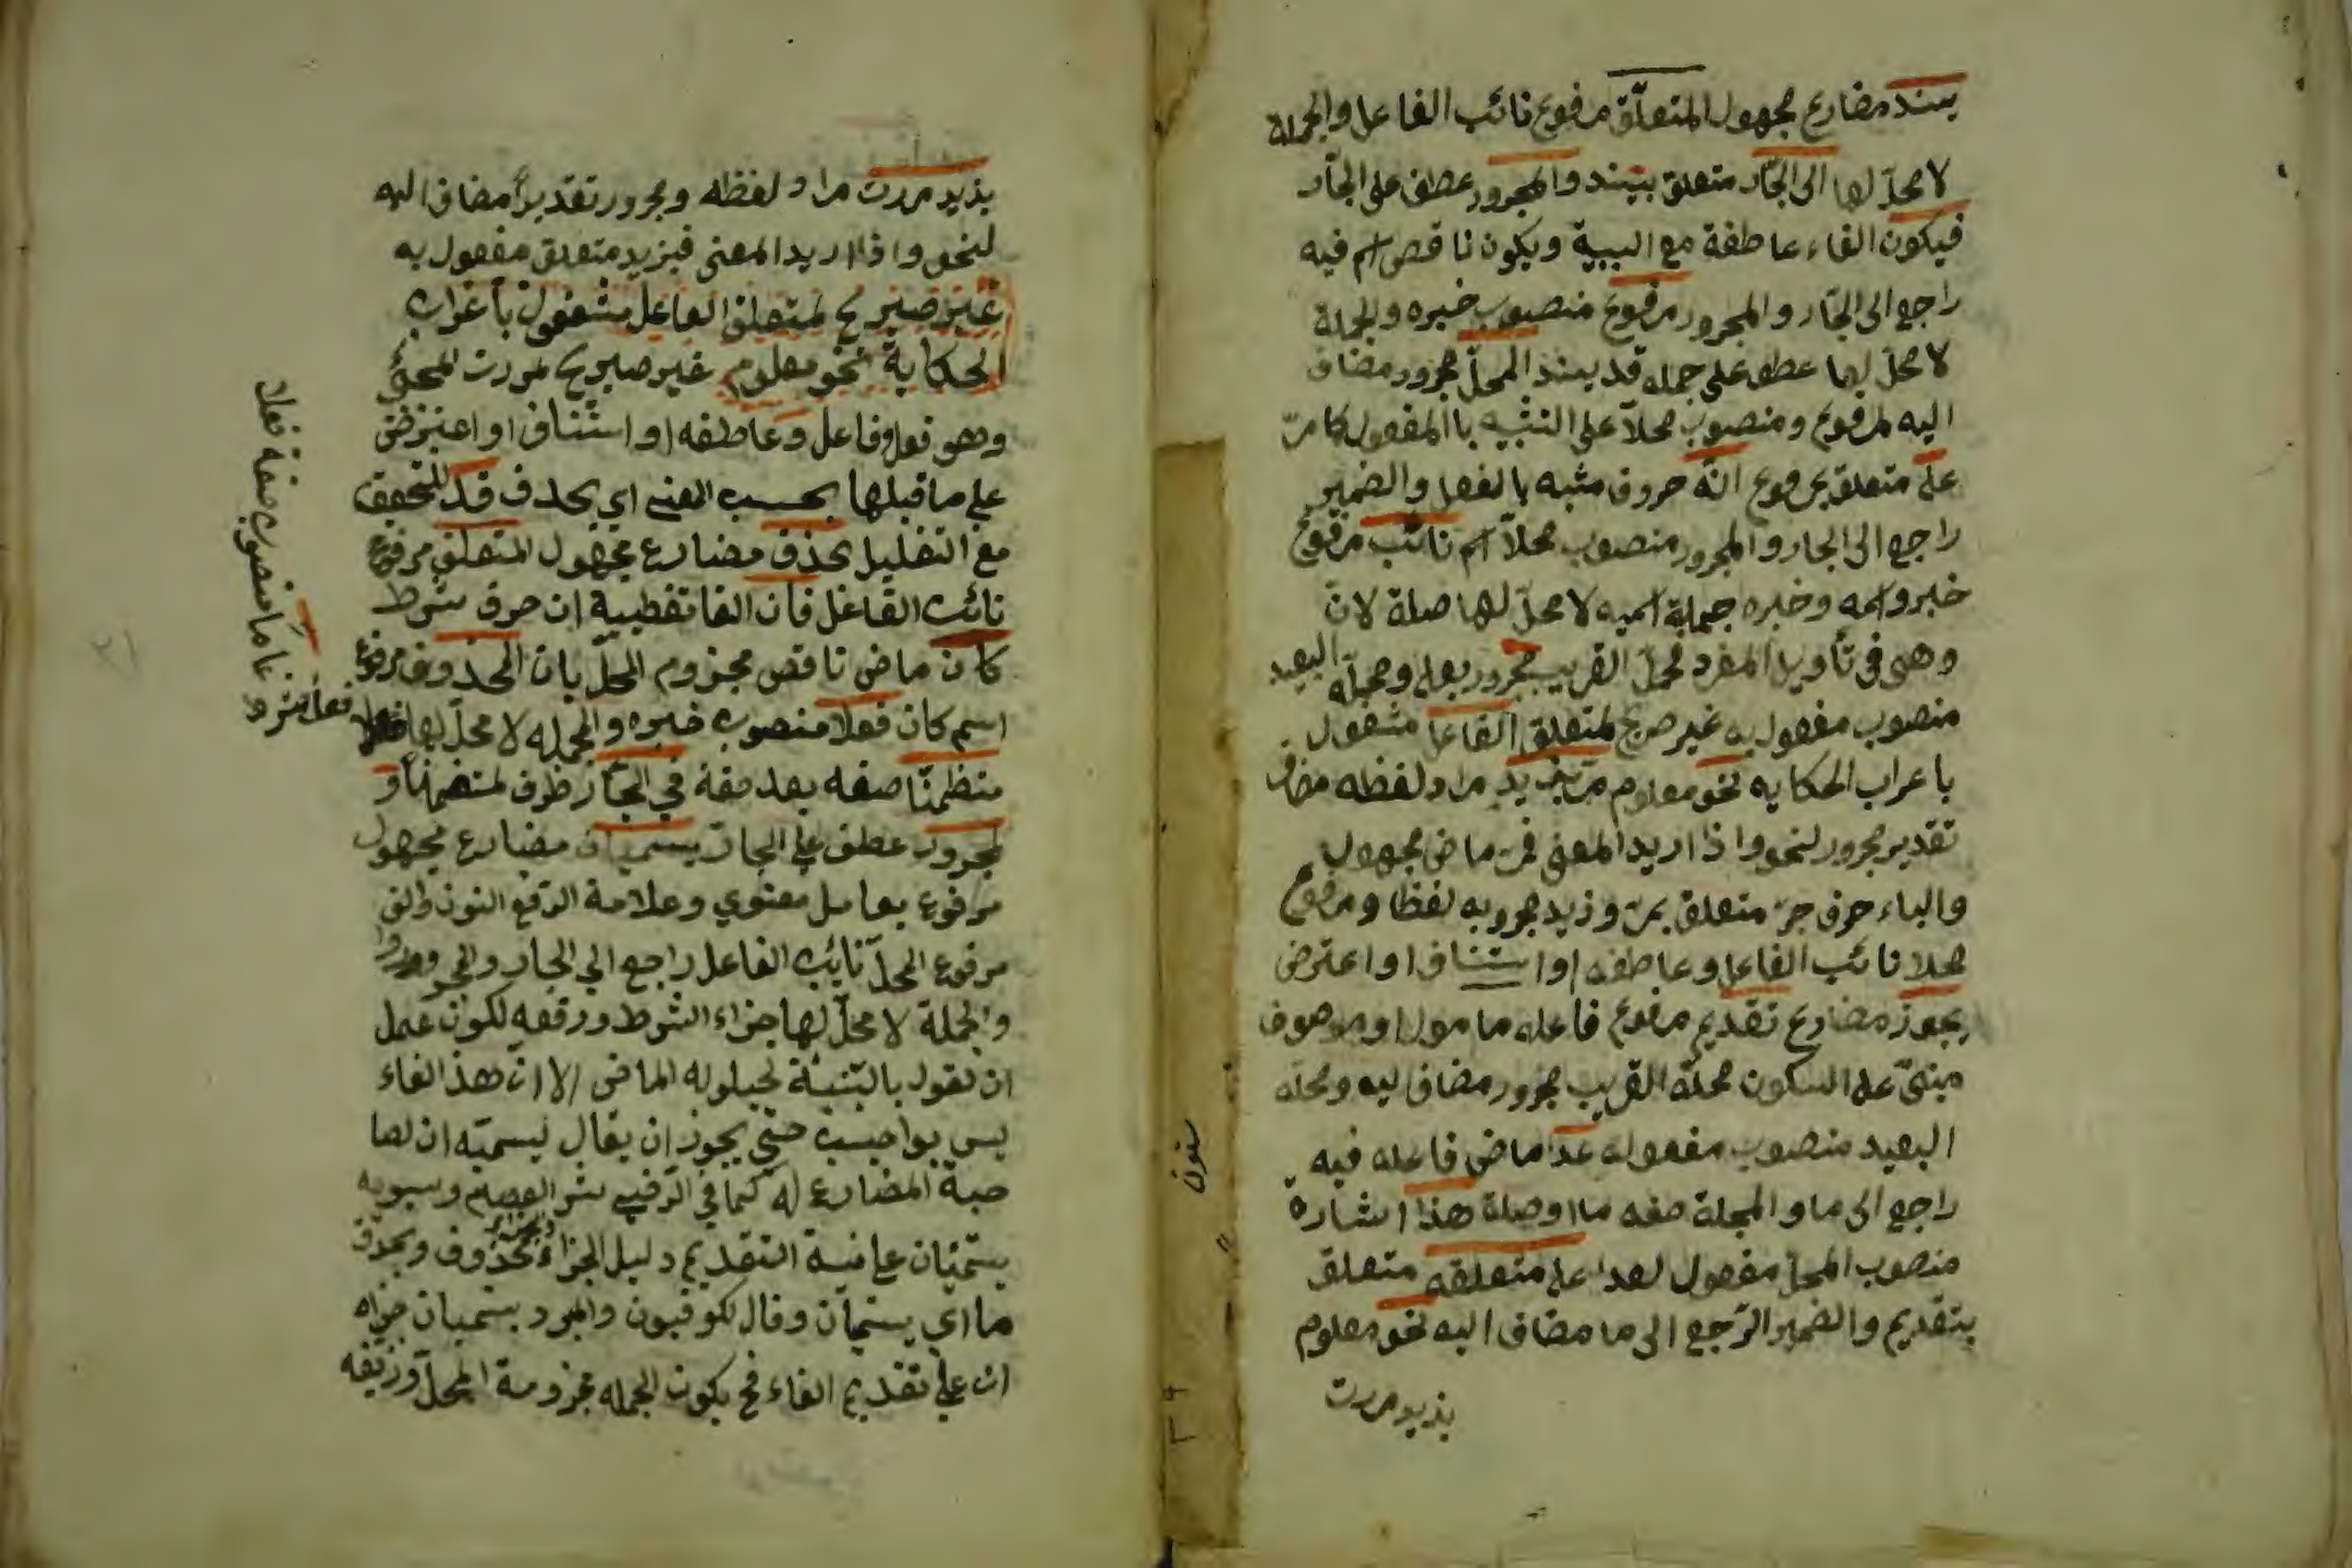 يسند مضارع مجهول المتعلّق مرفوع نائب الفاعل والجملة
لا محلّ لها الى الجّار متعلق بيسند والمجرور عطف على الجّار
فيكون الفاء عاطفة مع السببية ويكون ناقص اسم فيه
راجع الى الجّار والمجرور مرفوع منصوب خبره والجملة
لا محلّ لها عطف على جمله قد يسند المحلّ مجرور مضاف
اليه لمرفوع ومنصوب محلّا على التشبيه باالمفعول كا مرّ
على متعلق بمرفوع انّه حروف مشبه بالفعل والضمير
راجع الى الجار والمجرور منصوب محلّا اسم نائب مرفوع
خبر واسمه وخبره جملة اسميه لا محلّ لها صلة لانّ
وهى فى تأويل المفرد محلّ القريب مجرور بعلى ومحلّه البعيد
منصوب مفعول به غير صريح لمتعلق الفاعل مشغول
باعراب الحكايه نحو معلوم مرّ بزيد مراد لفظه مضاف
تقدير مجرور لنحو واذا اريد المعنى فمرّ ماضى مجهول
والباء حرف جرّ متعلق بمرّ وزيد مجرو به لفظا ومرفوع
محلا نائب الفاعل وعاطفه او استئناف او اعترض
يجوز مضارع تقديم مرفوع فاعله ما موله او موصوف
مبنىّ على السكون محلّه القريب مجرور مضاف اليه ومحله
البعيد منصوب مفعوله عدا ماضى فاعله فيه
راجع الى ما والجملة صفه ما او صلة هذا اشارة
منصوب المحل مفعول لعدا على متعلقه متعلق
بتقديم والضمير الرّجع الى ما مضاف اليه نحو معلوم
بذيد مررت
بذيد مررت مراد لفظه ومجرور تقديراً مضاف اليه
لنحو واذا اريد المعنى فبزيد متعلق مفعول به
غير صريح لمتعلق الفاعل مشغول بأعراب
الحكاية نحو معلوم غير صريح لمررت المحلّ
وهو فعل وفاعل وعاطفه او استئناف او اعترض
على ما قبلها بحسب المعنى اي بحذف قد للتحقيق
مع التقليل بحذف مضارع مجهول المتعلق مرفوع
نائب الفاعل فان الفا تفطيبية ان حرف شرط
كان ماضى ناقص مجزوم المحلّ بان المحذوف مرفوع
اسم كان فعلا منصوب خبره والجمله لا محلّ لها
متظمنّا صفه بعد صفة في الجّار ظرف لمتضمنا و
المجرور عطف على الجارّ يسميان مضارع مجهول
مرفوع بعامل معنوي وعلامة الرّفع النون والف
مرفوع المحلّ نائب الفاعل راجع الى الجار والمجرور
والجملة لا محلّ لها جزاء الشرط ورفعه لكون عمل
ان تقول بالتثنية لحيلوله الماضى الا انّ هذ الفاء
ليس بواجب حتى يجوز ان يقال ليسميّه ان لها
المضارع له كما في الرّضى العصام وسيبويه
يستميان على نية التقديم دليل الجزاء محذوف وبحذف
ما اي يسميان وقال لكوفيون والمبرد يسميان جزاه
ان على تقديم الفاء فح يكون الجمله مجزومة المحلّ
منصوب صفة فعلا
فعل
سنون
٢١